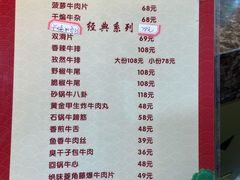 菠萝牛肉片 68元
干煸牛杂 68元
经典系列
双滑片 69元
香辣牛排 108元
孜然牛排 大份108元 小份78元
野椒牛尾 108元
脆椒牛尾 108元
砂锅牛八卦 118元
黄金甲生炸牛肉丸 48元
石锅牛蹄筋 58元
香煎牛舌 48元
鱼香牛肉丝 39元
臭干子包牛肉 36元
回锅牛心 48元
绝味菱角颤爆牛肉片 49元